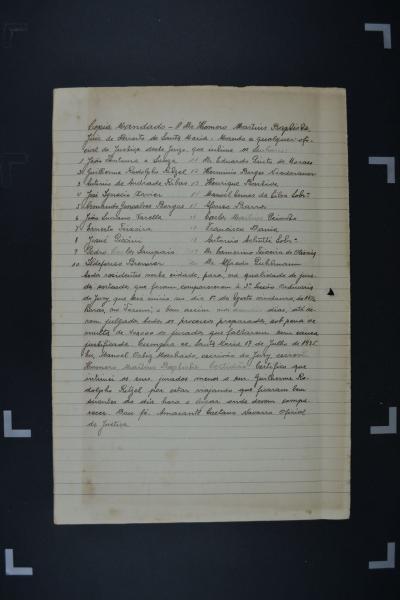 Copia Mandado - O Dr Homero Martins Baptista
Juiz de Districto de Santa Maria. Mando a qualquer ofi
cial de Justiça deste Juizo, que intime os Senhores:
1 João Fontoura e Souza 11 Dr. Eduardo Pinto de Moraes
2 Guilherme Rodolpho Kilzel 12 Herminio Borges
3 Antonio de Andrade Ribas 13 Henrique
4 José Ignacio Xavier 14 Manoel Lemos da Silva Sobrº
5 Fernando Gonçalves Borges 15 Afonso
6 João Luciano Varella 16 Carlos Martins
7 Ernesto Teixeira 17 Francisco
8 José 18 Antonio Sobrº
9 Pedro Carlos 19 Dr. Teixeira de
10 Ildefonso Brenner 20 Dr. Alfredo
todos residentes nesta cidade, para, na qualidade de jura
dos sorteados que foram, comparecerem à 3ª Sessão Ordinaria
do Jury, que terá inicio no dia 1º de Agosto vindouro, ás
horas, no Forum, e bem assim nos demais dias, até se
rem julgados todos os processos preparados, sob pena de
multa de os jurados que faltarem sem causa
justificada. Cumpra-se. Santa Maria 17 de Julho de 1925.
Eu, Manoel Ortiz Machado, escrivão do Jury escrevi.
Homero Martins Baptista Certidão Certifico que
intimei os srns jurados menos o snr. Guilherme Ro
dolpho Kilzel por estar viajando que ficaram bem
scientes do dia hora e lugar onde devem compa
recer. Dou fé. Amarante Caetano Navarro Oficial
de Justiça